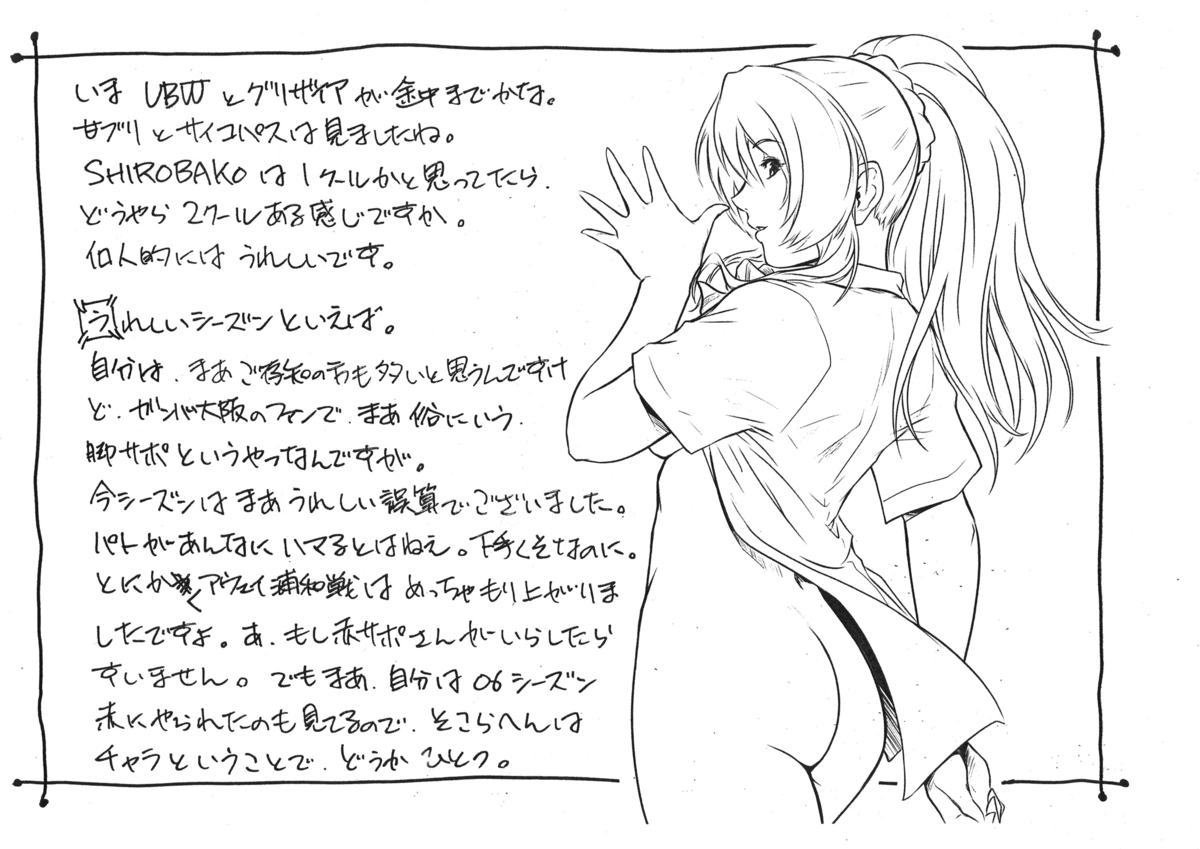 いま UBW とグリザイアが途中までかな。
甘ブリとサイコパスは見ましたね。
SHIROBAKOは1クールかと思ってたら、
どうやら2クールある感じですか。
個人的にはうれしいです。
うれしいシーズンといえば。
自分は、まあご存知の方も多いと思うんですけ
ど、ガンバ大阪のファンで、まあ俗にいう、
脚サポというやつなんですが。
今シーズンはまあうれしい誤算でございました。
パトがあんなにハマるとはねえ。下手くそなのに。
とにかく アウェイ浦和戦はめっちゃもり上がりま
したですよ。あ、もし赤サポさんがいらしたら
すいません。でもまあ、自分は06シーズン
赤にやられたのも見てるので、そこらへんは
チャラということで、どうかひとつ。